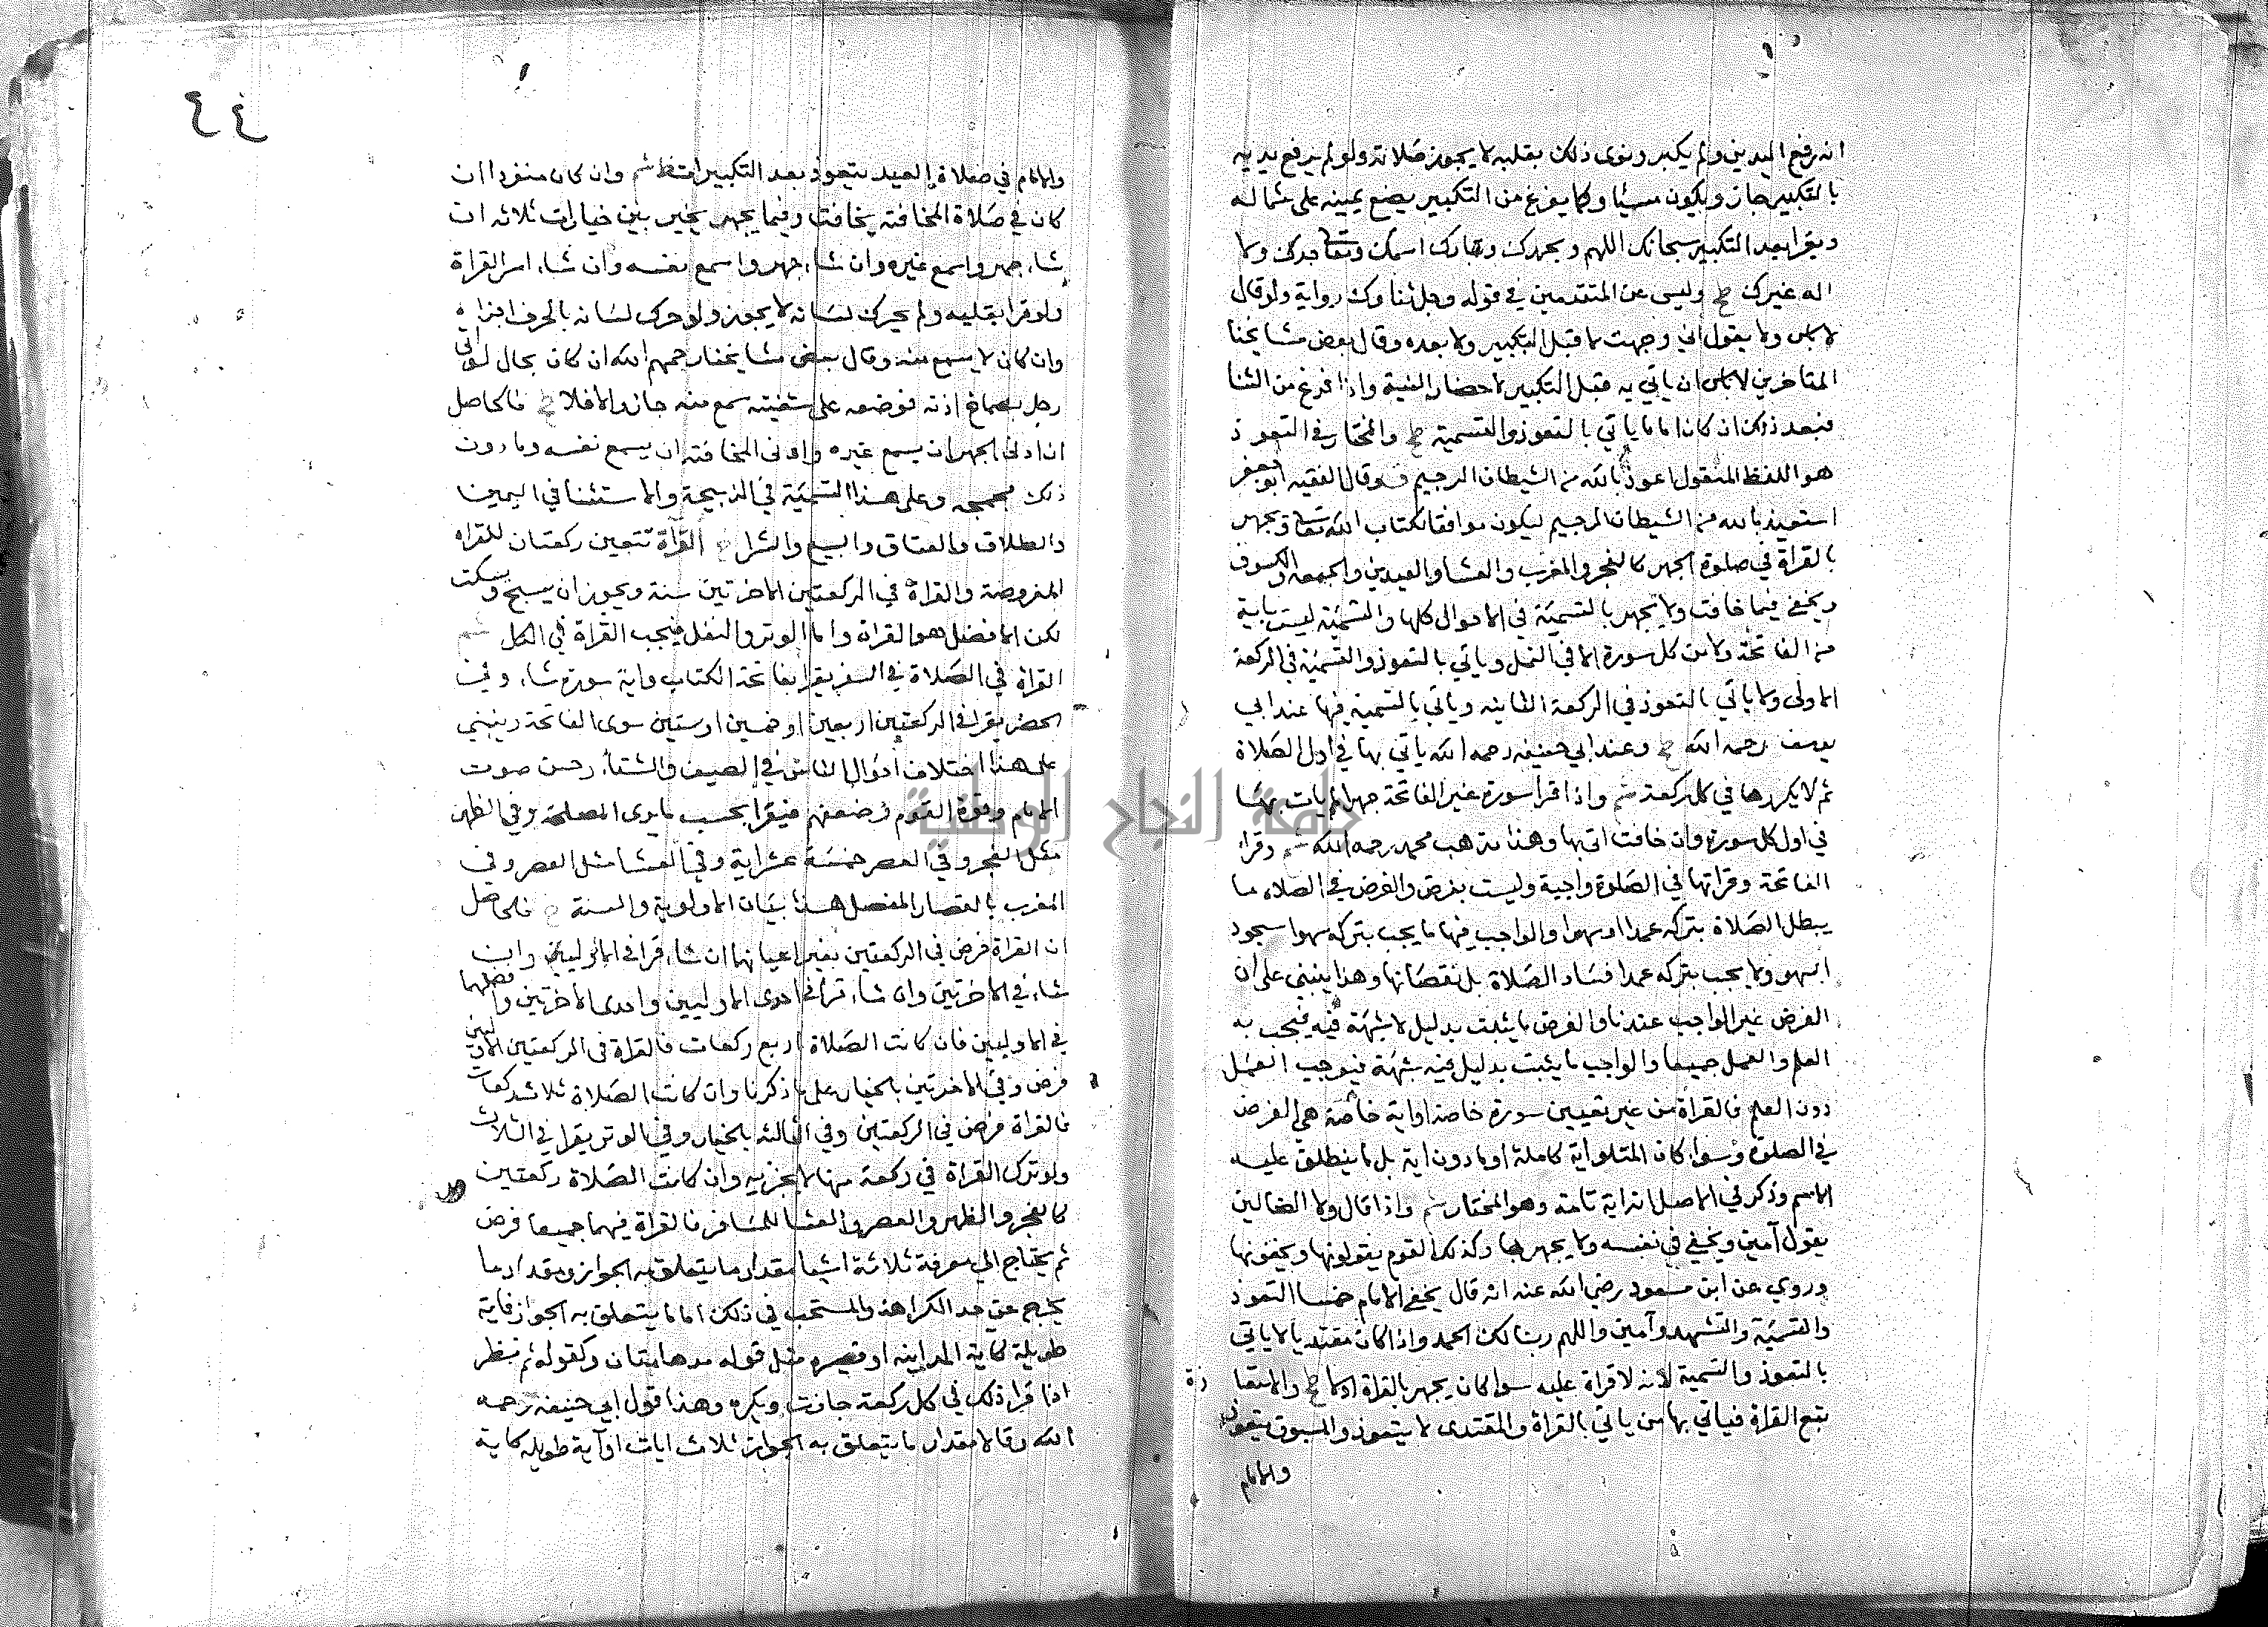 انه رفع اليدين ولم يكبر ونوى ذلك بقلبه لا يجوز صلاته ولو لم يرفع يديه
بالتكبير جاز ويكون مسيئا وكما يفرغ من التكبير يضع يمينه على شماله
ويقرا بعد التكبير سبحانك اللهم وبحمدك وتبارك اسمك وتعالى جدك ولا
اله غيرك وليس عن المتقدمين في قوله وجل ثناوك رواية ولو قال
لا باس ولا يقول اني وجهت لا قبل التكبير ولا بعده وقال بعض مشايخنا
المتاخرين لا باس ان ياتي به قبل التكبير لاحضار النية واذا فرغ من الثنا
فبعد ذلك ان كان اماما ياتي بالتعوذ والتسمية والمختار في التعوذ
هو اللفظ المنقول اعوذ بالله من الشيطان الرجيم وقال الفقيه ابو جعفر
استعيذ بالله من الشيطان الرجيم ليكون موافقا لكتاب الله تعالى ويجهر
بالقراة في صلوة الجهر كالفجر والمغرب والعشا والعيدين والجمعه والكسوف
ويخفي فيما خافت ولا يجهر بالتسمية في الاحوال كلها والتسمية ليست باية
من الفاتحة ولا من كل سورة الا في النمل وياتي بالتعوذ والتسمية في الركعة
الاولى ولا ياتي بالتعوذ في الركعة الثانيه وياتي بالتسمية فيها عند ابي
يوسف رحمه الله وعند ابي حنيفه رحمه الله ياتي بها في اول الصلاة
ثم لا يكررها في كل ركعة واذا قرا سورة غير الفاتحة جهرا لم يات بها
في اول كل سورة وان خافت اتى بها وهذا مذهب محمد رحمه الله وقراة
الفاتحة وقراتها في الصلوة واجبة وليست بفرض والفرض في الصلاه ما
يبطل الصلاة بتركه عمدا او سهوا والواجب فيها ما يجب بتركه سهوا سجود
السهو ولا يجب بتركه عمدا فساد الصلاة بل نقصانها وهذا ينبني على ان
الفرض غير الواجب عندنا والفرض ما يثبت بدليل لا شبهة فيه فيجب به
العلم والعمل جميعا والواجب ما يثبت بدليل فيه شبهة فيوجب العمل
دون العلم فالقراة من غير تعيين سورة خاصة او اية خاصة هي الفرض
في الصلوة وسواء كان المتلو اية كاملة او ما دون اية بل ما ينطلق عليه
الاسم وذكر في الاصل انه اية تامة وهو المختار واذا قال ولا الضالين
يقول آمين ويخفي في نفسه ولا يجهر بها وكذلك القوم يقولونها ويخفونها
وروي عن ابن مسعود رضي الله عنه انه قال يخفي الامام خمسا التعوذ
والتسمية والتشهد وآمين واللهم ربنا لك الحمد واذا كان مقتديا لا ياتي
بالتعوذ والتسمية لانه لا قراة عليه سوا كان يجهر بالقراة او لا والاستعاذة
تتبع القراة فياتي بها من ياتي بالقراة والمقتدى لا يتعوذ والمسبوق يتعوذ
والامام
والامام في صلاة العيد يتعوذ بعد التكبيرات وان كان منفردا ان
كان في صلاة المخافته يخافت وفيما يجهر يخير بين خيارات ثلاثه ان
شاء جهر واسمع غيره وان شاء جهر واسمع نفسه وان شاء اسر القراة
ولو قرا بقلبه ولم يحرك لسانه لا يجوز ولو حرك لسانه بالحرف اجزاه
وان كان لا يسمع منه وقال بعض مشايخنا رحمهم الله ان كان بحال لو ادنى
رجل بصماخ اذنه فوضعه على شفتيه سمع منه جاز والا فلا فالحاصل
ان ادنى الجهر ان يسمع غيره وادنى المخافته ان يسمع نفسه وما دون
ذلك مجمجه وعلى هذا التسمية في الذبيحة والاستثنا في اليمين
والطلاق والعتاق والبيع والشرا القراة تتعين ركعتان للقراه
المفروضة والقراة في الركعتين الاخرتين سنة ويجوز ان يسبح ويسكت
لكن الافضل هو القراة واما الوتر والنفل فيجب القراة في الكل
القراة في الصلاة في السفر يقرا بفاتحة الكتاب واية سورة شاء وفي
الحضر يقرا في الركعتين اربعين او خمسين او ستين سوى الفاتحة وينبني
على هذا اختلاف احوال الناس في الصيف والشتا وحسن صوت
الامام وقوة القوم وضعفهم فيقرا بحسب ما يرى المصلحة وفي الظهر
مثل الفجر وفي العصر خمسة عشر اية وفي العشا مثل العصر وفي
المغرب بالقصار المفصل هذا بيان الاولوية والسنة فالحاصل
ان القراة فرض في الركعتين بغير اعيانها ان شاء قرا في الاوليين وان
شاء في الاخرتين وان شاء قرا في احدى الاوليين واحدى الاخرتين وافضلهما
في الاوليين فان كانت الصلاة اربع ركعات فالقراة في الركعتين الاوليين
فرض وفي الاخرتين بالخيار على ما ذكرنا وان كانت الصلاة ثلاث ركعات
فالقراة فرض في الركعتين وفي الثالثه بالخيار وفي الوتر يقرا في الثلاث
ولو ترك القراة في ركعة منها لا يجزيه وان كانت الصلاة ركعتين
كالفجر والظهر والعصر والعشا للمسافر فالقراة فيهما جميعا فرض
ثم يحتاج الى معرفة ثلاثة اشيا مقدار ما يتعلق به الجواز ومقدار ما
يخرج عن حد الكراهة والمستحب في ذلك اما ما يتعلق به الجواز فاية
طويلة كاية المداينه او قصيره مثل قوله مدهامتان وكقوله ثم نظر
اذا قرا ذلك في كل ركعة جازت ويكره وهذا قول ابي حنيفه رحمه
الله وقالا مقدار ما يتعلق به الجواز ثلاث ايات او آية طويله كاية
جامعة النجاح الوطنية